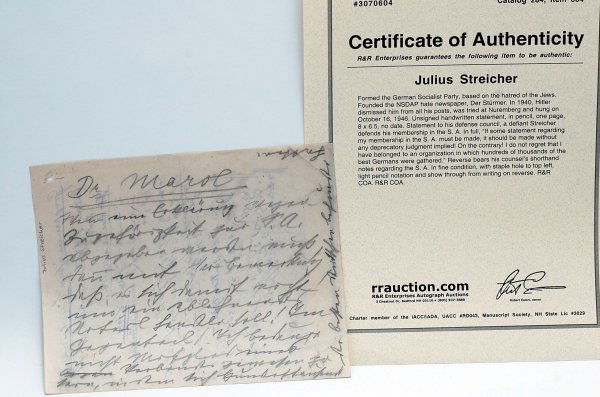 #3070604
Catalog 284, Item 604
Certificate of Authenticity
R&R Enterprises guarantees the following item to be authentic:
Julius Streicher
Formed the German Socialist Party, based on the hatred of the Jews.
Founded the NSDAP hate newspaper, Der Stürmer. In 1940, Hitler
dismissed him from all his posts, was tried at Nuremberg and hung on
October 16, 1946. Unsigned handwritten statement, in pencil, one page,
8 x 6.5, no date. Statement to his defense council, a defiant Streicher
defends his membership in the S. A. In full, "If some statement regarding
my membership in the S. A. must be made, it should be made without
any deprecatory judgment implied! On the contrary! I do not regret that I
have belonged to an organization in which hundreds of thousands of the
best Germans were gathered." Reverse bears his counsel's shorthand
notes regarding the S. A. In fine condition, with staple hole to top left,
light pencil notation and show through from writing on reverse. R&R
COA. R&R COA.
rrauction.com
R&R Enterprises Autograph Auctions
3 Chestnut Dr, Bedford NH 03110 • (800) 937-3880
Robert Eaton, owner
Charter member of the IACC/IADA, UACC #RD043, Manuscript Society, NH State Lic #3029
Julius Streicher
Dr. Marx
Wenn eine Erklärung wegen
Zugehörigkeit zur S.A.
abgegeben werden muß
mit der Bemerkung
daß es sich damit nicht
um ein
Urteil handeln soll! Im
Gegenteil! Ich bedauere
nicht